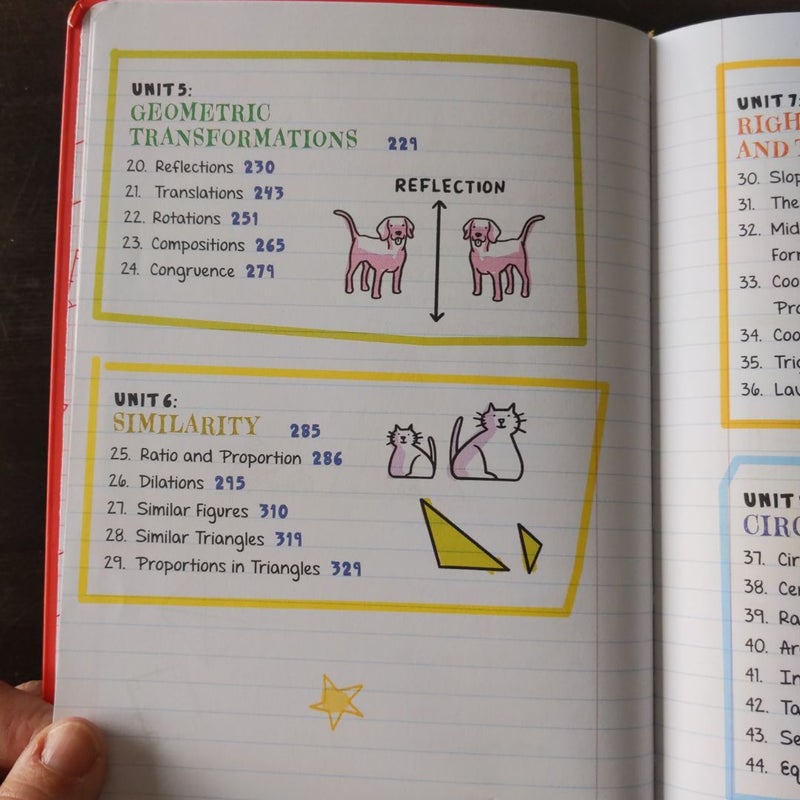 UNIT 5:
GEOMETRIC
TRANSFORMATIONS 229
20. Reflections 230
21. Translations 243
22. Rotations 251
23. Compositions 265
24. Congruence 279
REFLECTION
UNIT 6:
SIMILARITY 285
25. Ratio and Proportion 286
26. Dilations 295
27. Similar Figures 310
28. Similar Triangles 319
29. Proportions in Triangles 329
UNIT 7:
AND
30.
31. The
32.
33.
34.
35.
36.
UNIT
37.
38.
39.
40.
41.
42.
43.
44.